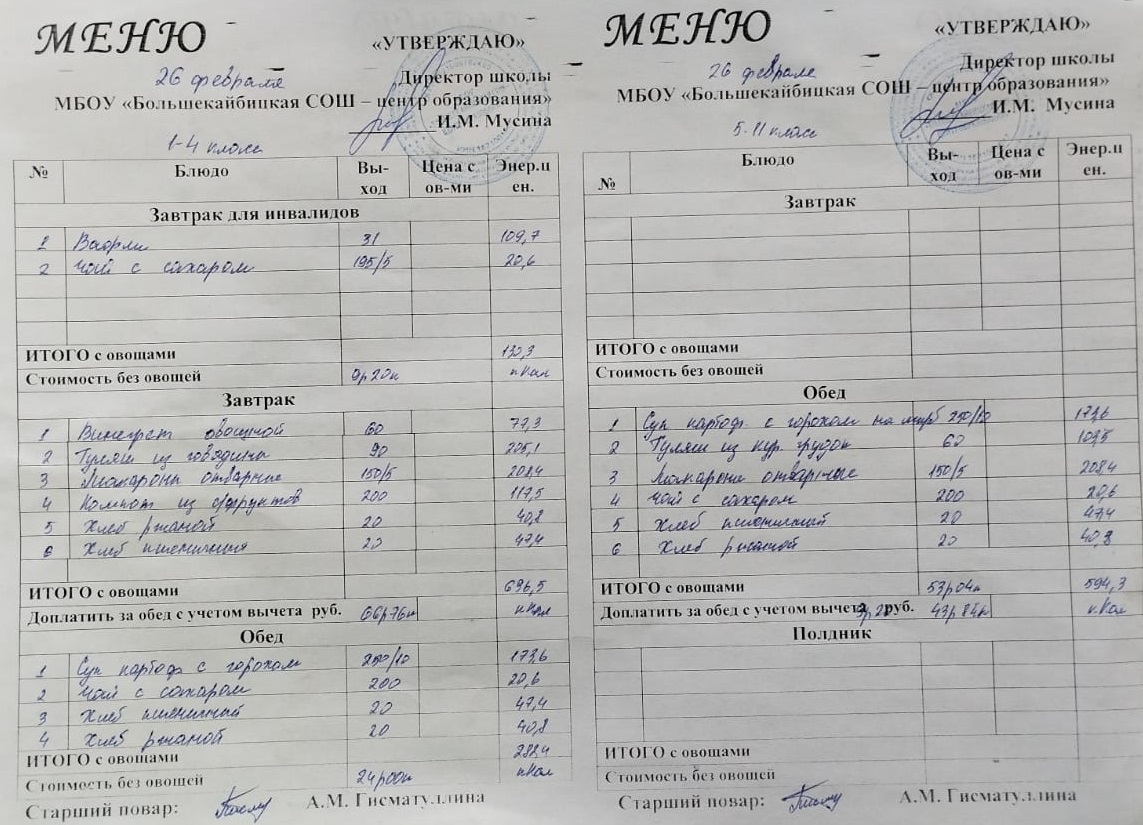 МЕНЮ
«УТВЕРЖДАЮ»
26 февраля
Директор школы
МБОУ «Большекайбицкая СОШ – центр образования»
И.М. Мусина
1-4 класс
№ Блюдо Вы-ход Цена с ов-ми Энер.ц ен.
Завтрак для инвалидов
1 Вафли 31 109,7
2 Чай с сахаром 195/5 20,6
ИТОГО с овощами 130,3
Стоимость без овощей 9р20к кКал
Завтрак
1 Винегрет овощной 60 77,3
2 Гуляш из говядины 90 205,1
3 Макароны отварные 150/5 208,4
4 Компот из с/фруктов 200 117,5
5 Хлеб ржаной 20 40,8
6 Хлеб пшеничный 20 47,4
ИТОГО с овощами 696,5
Доплатить за обед с учетом вычета руб. 66р76к кКал
Обед
1 Суп картоф с горохом 250/10 173,6
2 Чай с сахаром 200 20,6
3 Хлеб пшеничный 20 47,4
4 Хлеб ржаной 20 40,8
ИТОГО с овощами 282,4
Стоимость без овощей 24р00к кКал
Старший повар: А.М. Гисматуллина
МЕНЮ
«УТВЕРЖДАЮ»
26 февраля
Директор школы
МБОУ «Большекайбицкая СОШ – центр образования»
И.М. Мусина
5-11 класс
№ Блюдо Вы-ход Цена с ов-ми Энер.ц ен.
Завтрак
ИТОГО с овощами
Стоимость без овощей
Обед
1 Суп картоф с горохом на 250/10 173,6
2 Гуляш из кур. грудок 60 103,5
3 Макароны отварные 150/5 208,4
4 Чай с сахаром 200 20,6
5 Хлеб пшеничный 20 47,4
6 Хлеб ржаной 20 40,8
ИТОГО с овощами 53р04к 594,3
Доплатить за обед с учетом вычета руб. 43р84к кКал
Полдник
ИТОГО с овощами
Стоимость без овощей
Старший повар: А.М. Гисматуллина